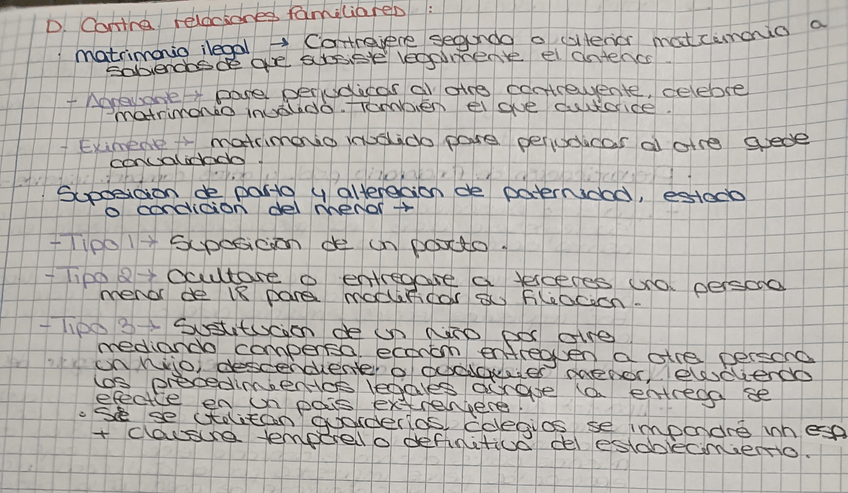 D. Contra relaciones familiares :
· matrimonio ilegal → Contrajere segundo o ulterior matrimonio a
sabiendas de que subsiste legalmente el anterior.
- Agravante → para perjudicar al otro contrayente, celebre
matrimonio inválido. También el que autorice.
- Eximente → matrimonio inválido para perjudicar al otro quede
convalidado.
· Suposición de parto y alteración de paternidad, estado
o condición del menor →
- Tipo 1 → Suposición de un parto.
- Tipo 2 → Ocultare o entregare a terceros una persona
menor de 18 para modificar su filiación.
- Tipo 3 → Sustitución de un niño por otro
mediando compensa. económ entreguen a otra persona
un hijo, descendiente o cualquier menor, eludiendo
los procedimientos legales aunque la entrega se
efectúe en un país extranjero.
· Si se utilizan guarderías, colegios se impondrá inh esp
+ clausura temporal o definitiva del establecimiento.